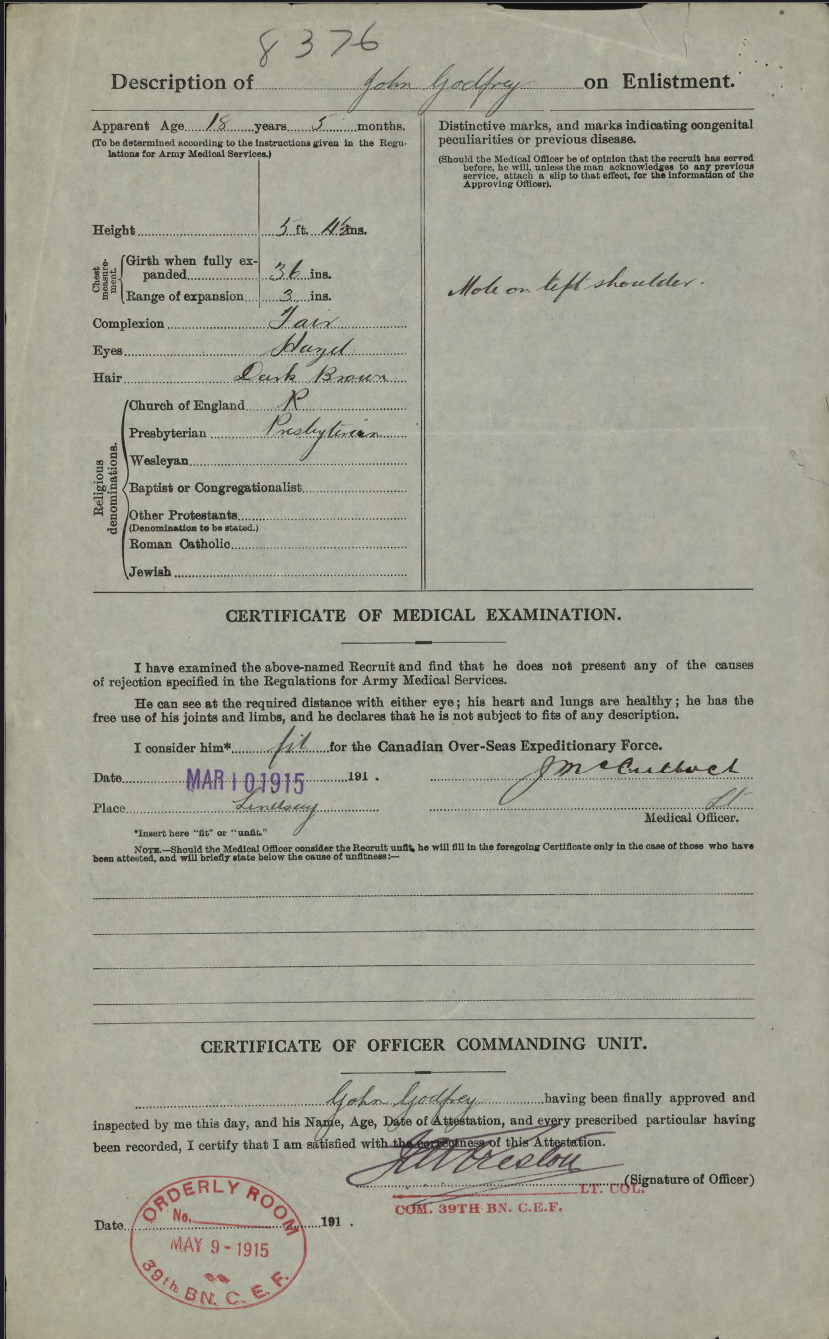 8376
Description of John Godfrey on Enlistment.
Apparent Age 18 years 5 months.
(To be determined according to the instructions given in the Regulations for Army Medical Services.)
Height 5 ft. 4½ ins.
Chest measurement.
Girth when fully expanded 36 ins.
Range of expansion 3 ins.
Complexion Fair
Eyes Hazel
Hair Dark Brown
Religious denominations.
Church of England
Presbyterian Presbyterian
Wesleyan
Baptist or Congregationalist
Other Protestants
(Denomination to be stated.)
Roman Catholic
Jewish
Distinctive marks, and marks indicating congenital
peculiarities or previous disease.
(Should the Medical Officer be of opinion that the recruit has served
before, he will, unless the man acknowledges to any previous
service, attach a slip to that effect, for the information of the
Approving Officer).
Mole on left shoulder.
CERTIFICATE OF MEDICAL EXAMINATION.
I have examined the above-named Recruit and find that he does not present any of the causes
of rejection specified in the Regulations for Army Medical Services.
He can see at the required distance with either eye; his heart and lungs are healthy; he has the
free use of his joints and limbs, and he declares that he is not subject to fits of any description.
I consider him* fit for the Canadian Over-Seas Expeditionary Force.
Date MAR 10 1915 191 .
J McCulloch
Place Lindsay
Lt
Medical Officer.
*Insert here "fit" or "unfit."
NOTE.—Should the Medical Officer consider the Recruit unfit, he will fill in the foregoing Certificate only in the case of those who have
been attested, and will briefly state below the cause of unfitness:—
CERTIFICATE OF OFFICER COMMANDING UNIT.
John Godfrey having been finally approved and
inspected by me this day, and his Name, Age, Date of Attestation, and every prescribed particular having
been recorded, I certify that I am satisfied with the correctness of this Attestation.
Preston (Signature of Officer)
LT. COL.
COM. 39TH BN. C.E.F.
Date 191 .
ORDERLY ROOM
No.
MAY 9 - 1915
39th BN. C. E. F.